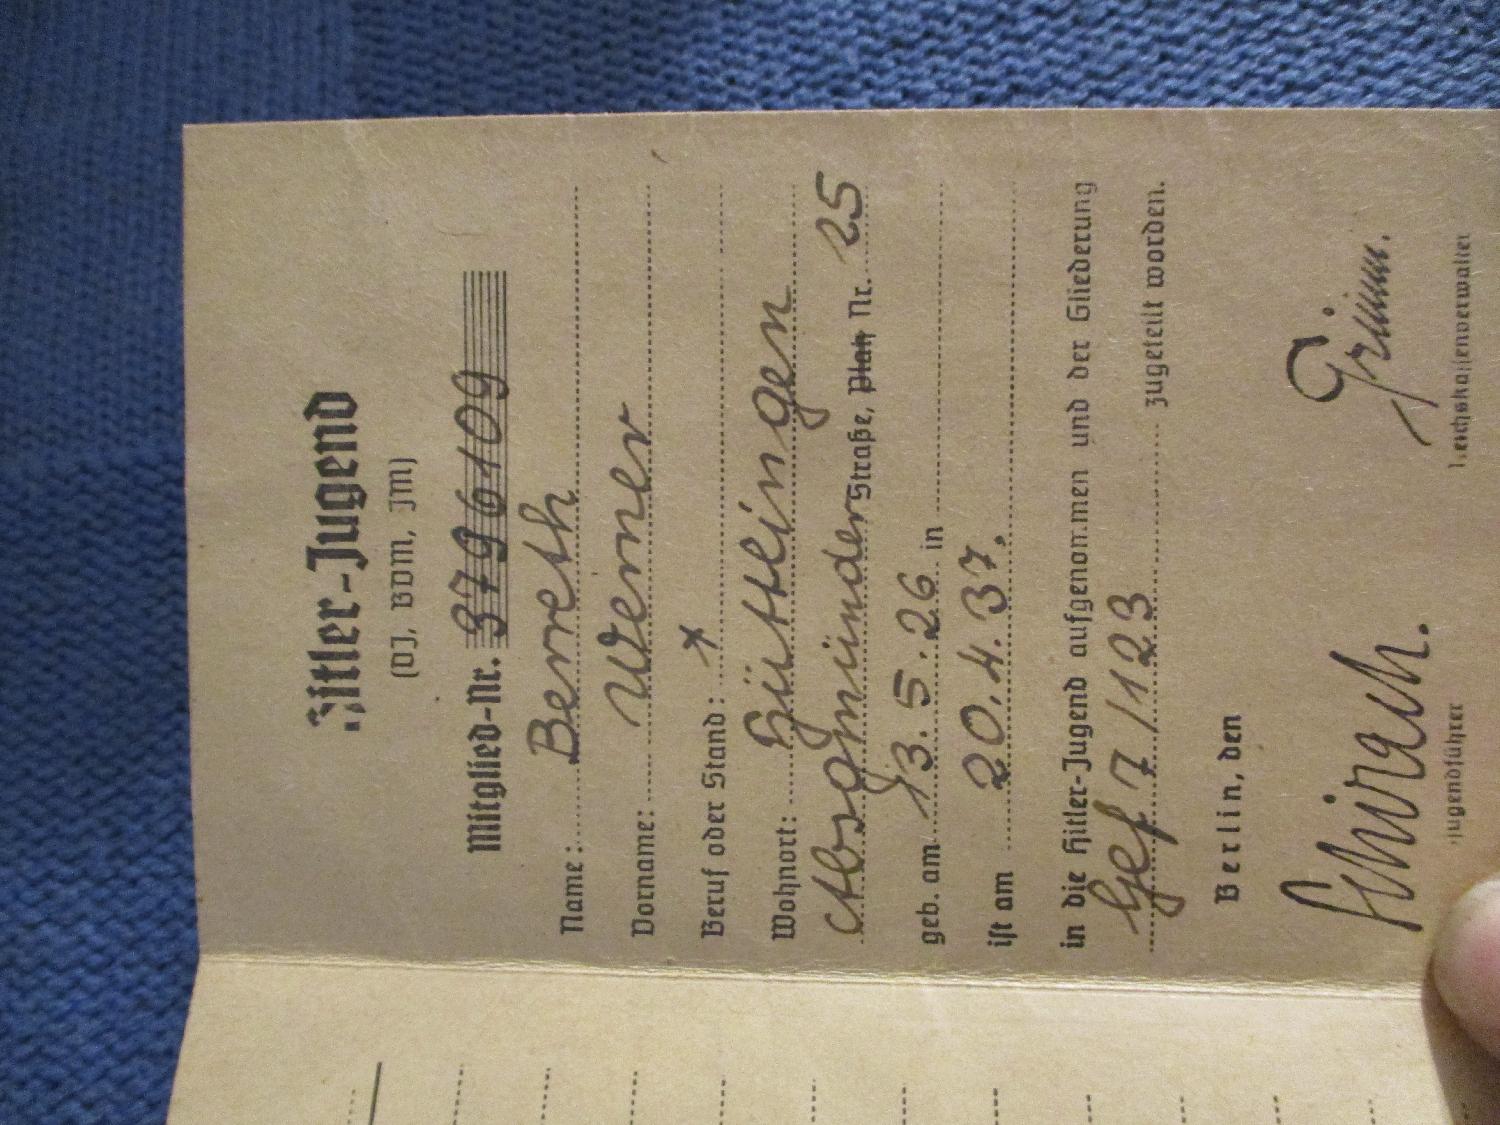 Hitler-Jugend
(DJ, BDM, JM)
Mitglied-Nr. 3796109
Name: Berreth
Vorname: Werner
Beruf oder Stand: x
Wohnort: Hüttlingen
Abtsgmünder Straße, Platz Nr. 25
geb. am 13.5.26 in
ist am 20.4.37.
in die Hitler-Jugend aufgenommen und der Gliederung
Gef 7/123 zugeteilt worden.
Berlin, den
Schirach. Grimm.
jugendführer Reichskassenverwalter